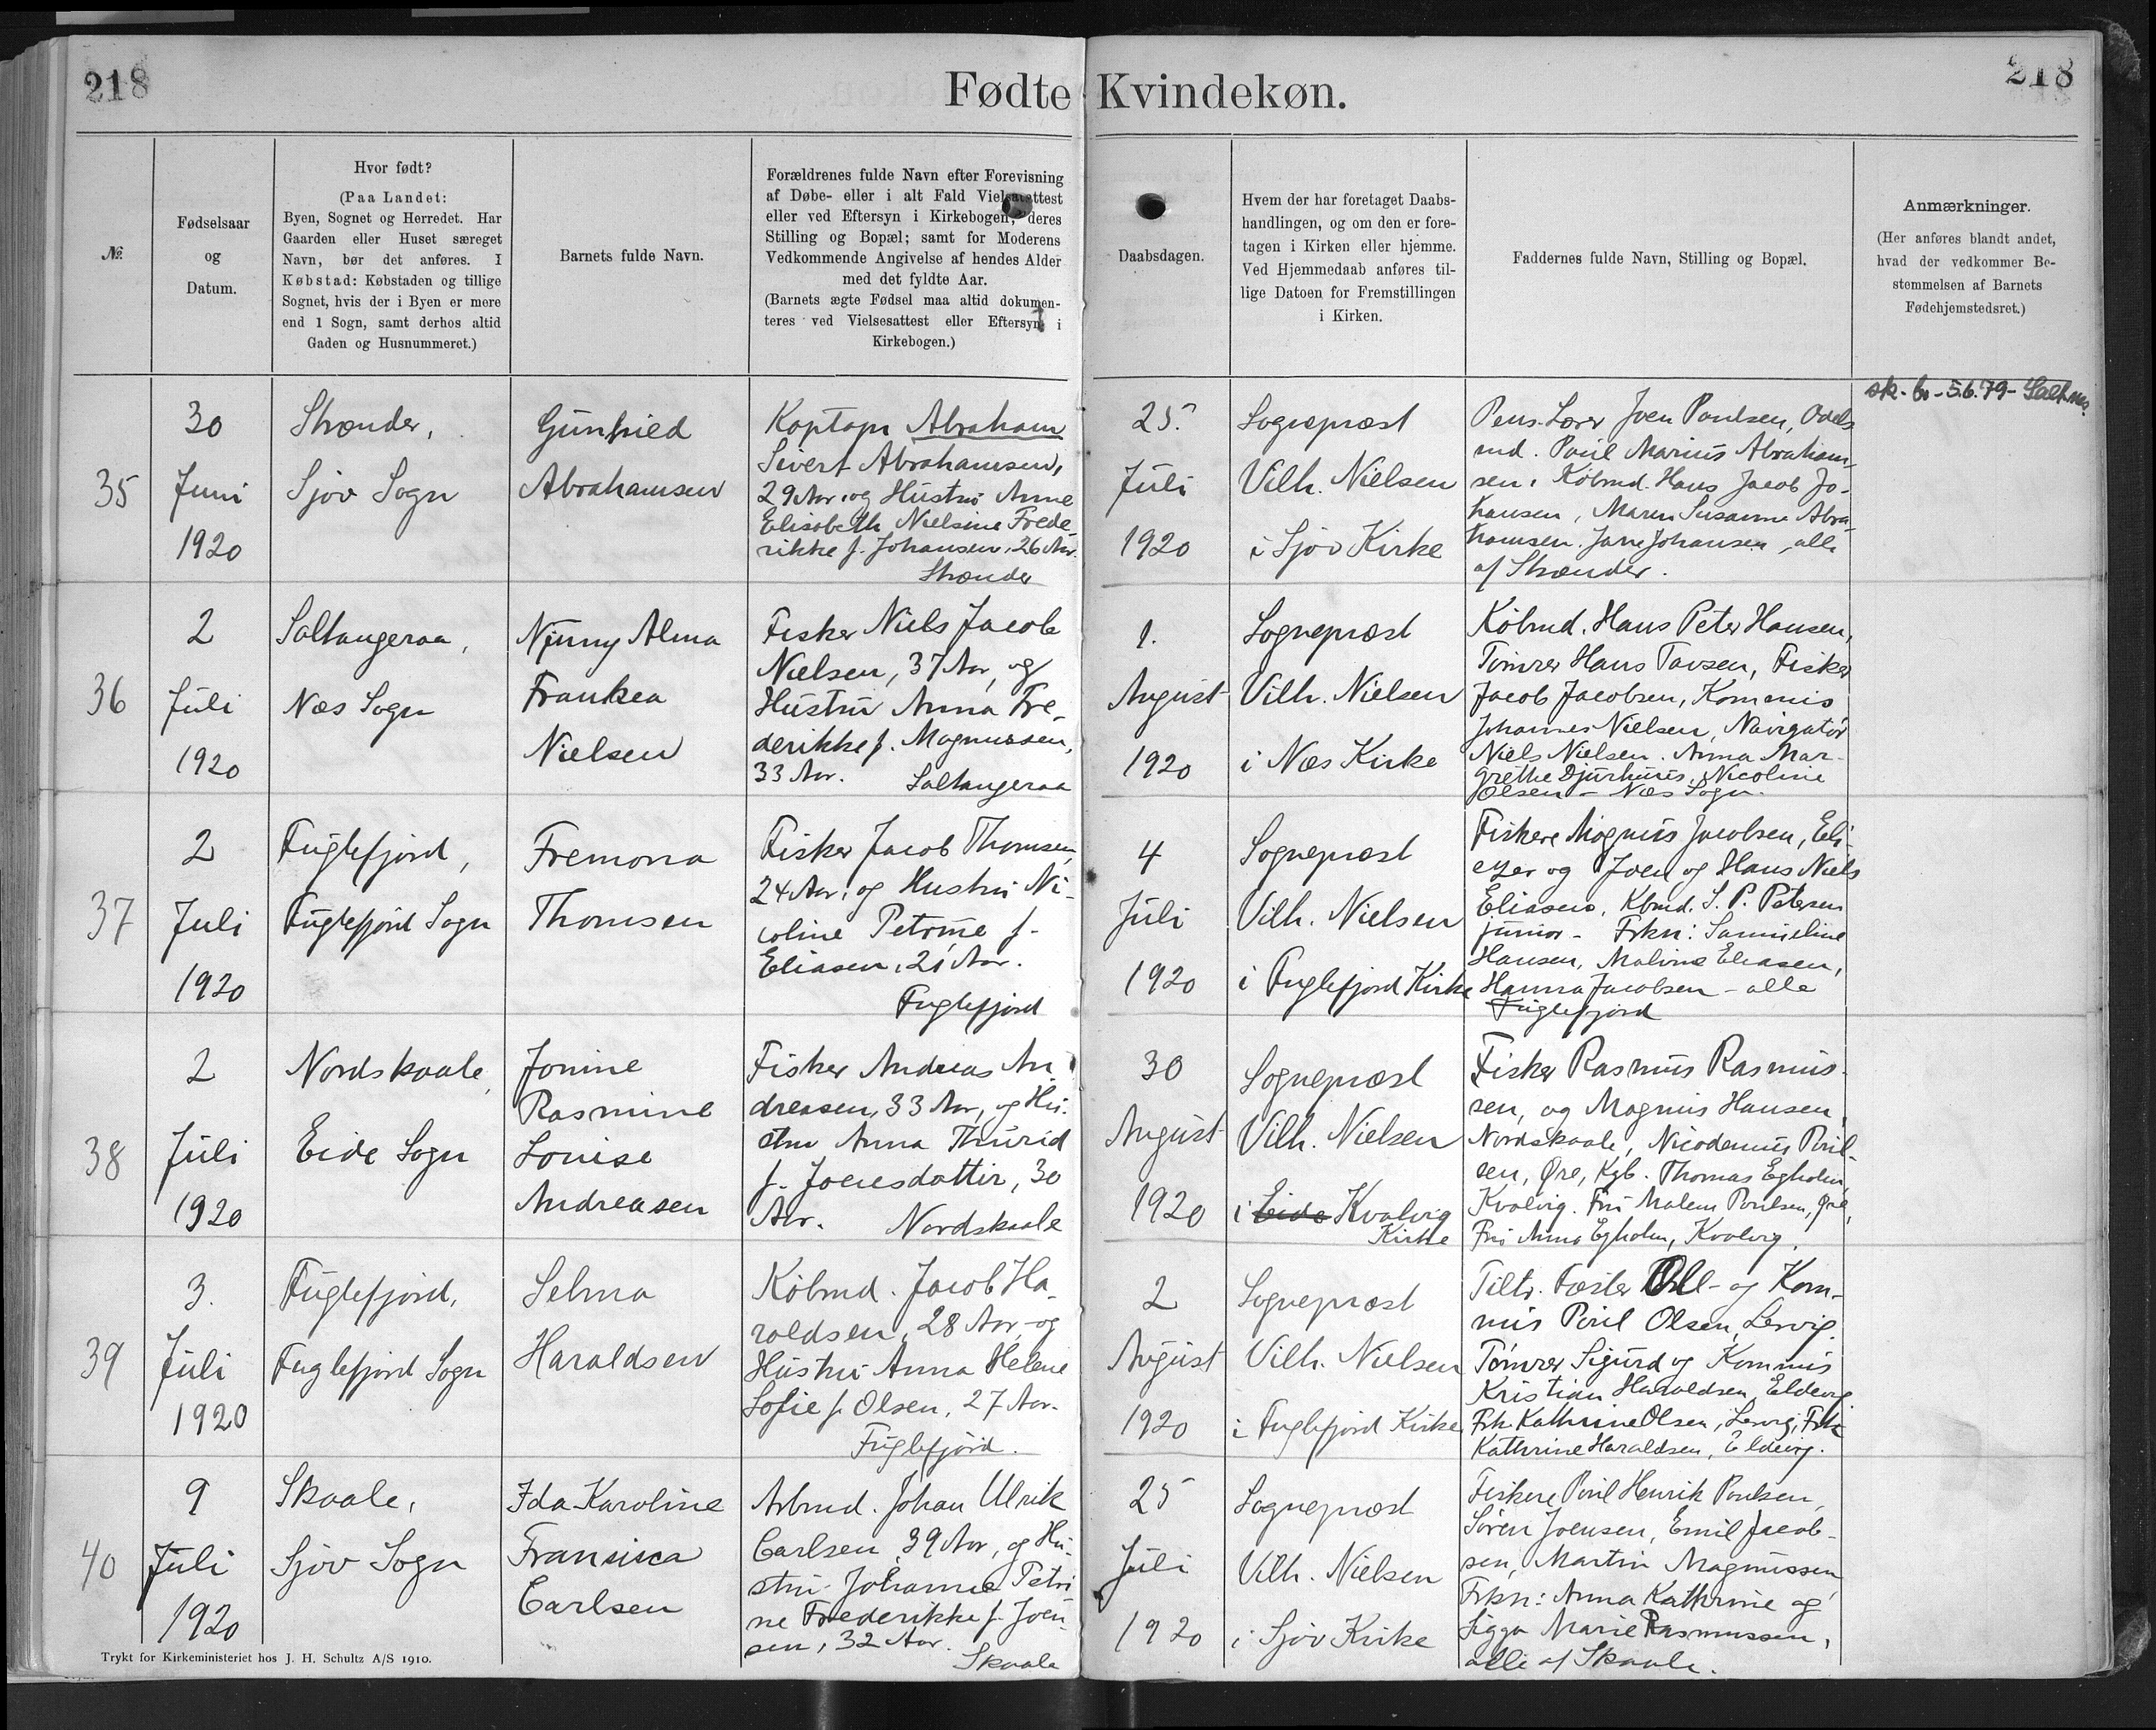 218
Fødte Kvindekøn.
218
№
Fødselsaar
og
Datum.
Hvor født?
(Paa Landet:
Byen, Sognet og Herredet. Har
Gaarden eller Huset særeget
Navn, bør det anføres. I
Købstad: Købstaden og tillige
Sognet, hvis der i Byen er mere
end 1 Sogn, samt derhos altid
Gaden og Husnummeret.)
Barnets fulde Navn.
Forældrenes fulde Navn efter Forevisning
af Døbe- eller i alt Fald Vielsesattest
eller ved Eftersyn i Kirkebogen, deres
Stilling og Bopæl; samt for Moderens
Vedkommende Angivelse af hendes Alder
med det fyldte Aar.
(Barnets ægte Fødsel maa altid dokumen-
teres ved Vielsesattest eller Eftersyn i
Kirkebogen.)
Daabsdagen.
Hvem der har foretaget Daabs-
handlingen, og om den er fore-
tagen i Kirken eller hjemme.
Ved Hjemmedaab anføres til-
lige Datoen for Fremstillingen
i Kirken.
Faddernes fulde Navn, Stilling og Bopæl.
Anmærkninger.
(Her anføres blandt andet,
hvad der vedkommer Be-
stemmelsen af Barnets
Fødehjemstedsret.)
35
30
Juni
1920
Strænder,
Sjov Sogn
Gunfried
Abrahamsen
Koptapn Abraham
Sivert Abrahamsen,
29 Aar, og Hustru Anne
Elisabeth Nielsine Frede-
rikke f. Johansen, 26 Aar.
Strænder
25.
Juli
1920
Sognepræst
Vilh. Nielsen
i Sjov Kirke
Pens. Lærer Joen Poulsen, Odels
md. Poul Marius Abraham-
sen, Købmd. Hans Jacob Jo-
hansen, Maren Susanne Abra-
hamsen, Jane Johansen, alle
af Strænder.
sk. b. - 5.6.79 -
36
2
Juli
1920
Saltangeraa,
Næs Sogn
Njunny Alma
Frankea
Nielsen
Fisker Niels Jacob
Nielsen, 37 Aar, og
Hustru Anna Fre-
derikke f. Magnussen,
33 Aar.
Saltangeraa
1.
August
1920
Sognepræst
Vilh. Nielsen
i Næs Kirke
Købmd. Hans Peter Hansen,
Tømrer Hans Tavsen, Fisker
Jacob Jacobsen, Kommis
Johannes Nielsen, Navigatør
Niels Nielsen. Anna Mar-
grethe Djurhuus, Nicoline
Olsen - Næs Sogn.
37
2
Juli
1920
Fuglefjord,
Fuglefjord Sogn
Fremona
Thomsen
Fisker Jacob Thomsen
24 Aar, og Hustru Ni-
coline Petrine f.
Eliasen, 21 Aar.
Fuglefjord
4
Juli
1920
Sognepræst
Vilh. Nielsen
i Fuglefjord Kirke
Fiskere Mognus Jacobsen, Eli-
ezer og Joen og Hans Niels
Eliasen, Kbmd. S. P. Petersen
junior - Frkn: Samuline
Hansen, Malvine Eliasen,
Hanna Jacobsen - alle
Fuglefjord
38
2
Juli
1920
Nordskaale,
Eide Sogn
Jonine
Rasmine
Louise
Andreasen
Fisker Andreas An-
dreasen, 33 Aar, og Hu-
stru Anna Thurid
f. Joensdottir, 30
Aar.
Nordskaale
30
August
1920
Sognepræst
Vilh. Nielsen
i Eide Kvalvig
Kirke
Fisker Rasmus Rasmus-
sen, og Magnus Hansen,
Nordskaale, Nicodemus Poul-
sen, Øre, Kgb. Thomas Egholm,
Kvalvig. Fru Malene Poulsen, Øre,
Fru Anna Egholm, Kvalvig.
39
3.
Juli
1920
Fuglefjord,
Fuglefjord Sogn
Selma
Haraldsen
Købmd. Jacob Ha-
raldsen, 28 Aar, og
Hustru Anna Helene
Sofie f. Olsen, 27 Aar.
Fuglefjord.
2
August
1920
Sognepræst
Vilh. Nielsen
i Fuglefjord Kirke
Tiltr. Fæster - og Kom-
mis Poul Olsen, Lervig.
Tømrer Sigurd og Kommis
Kristian Haraldsen, Eldevig
Frk. Kathrine Olsen, Lervig, Frk.
Kathrine Haraldsen, Eldevig.
40
9
Juli
1920
Skaale,
Sjov Sogn
Ida Karoline
Fransisca
Carlsen
Arbmd. Johan Ulrik
Carlsen, 39 Aar, og Hu-
stru Johanne Petri-
ne Frederikke f. Joen-
sen, 32 Aar.
Skaale
25
Juli
1920
Sognepræst
Vilh. Nielsen
i Sjov Kirke
Fiskere Poul Henrik Poulsen,
Søren Joensen, Emil Jacob-
sen, Martin Magnussen
Frkn: Anna Kathrine og
Sigga Marie Rasmussen,
alle af Skaale.
Trykt for Kirkeministeriet hos J. H. Schultz A/S 1910.